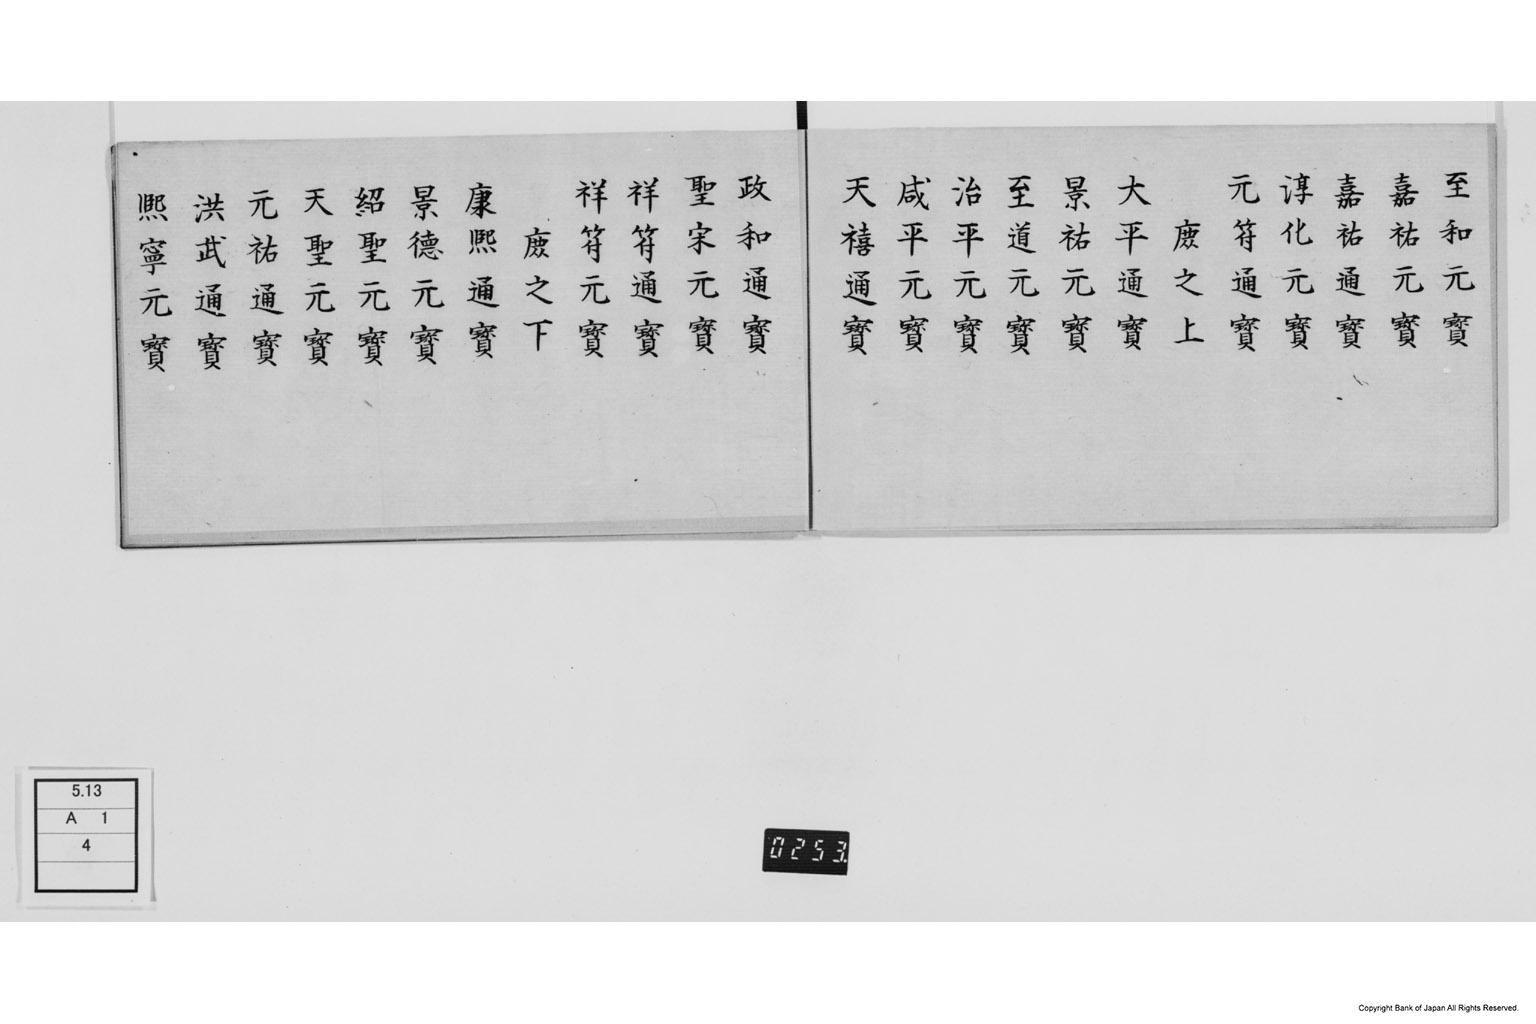 至和元寳
嘉祐元寳
嘉祐通寳
淳化元寳
元符通寳
麃之上
大平通寳
景祐元寳
至道元寳
治平元寳
咸平元寳
天禧通寳
政和通寳
聖宋元寳
祥符通寳
祥符元寳
麃之下
康熈通寳
景德元寳
紹聖元寳
天聖元寳
元祐通寳
洪武通寳
熈寧元寳
5.13
A 1
4
0253
Copyright Bank of Japan All Rights Reserved.